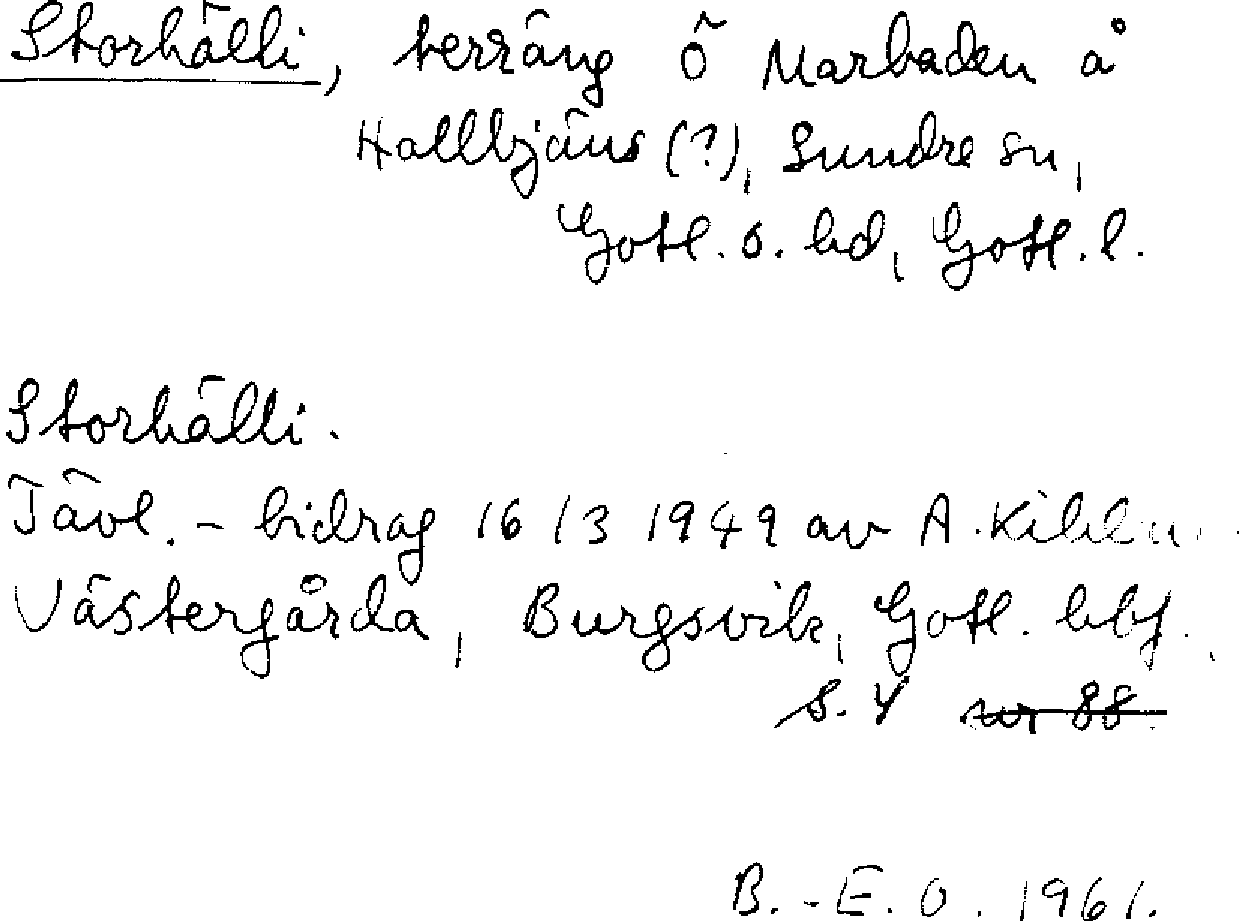 Storhälli, terräng Ö Marbaden å
Hallbjäns (?), Sundre sn,
Gotl. s. hd, Gotl. l.
Storhälli.
Tävl. - bidrag 16/3 1949 av A.
Västergårda, Burgsvik, Gotl. hbf.,
s. 4 nr 88
B.-E. O. 1961.